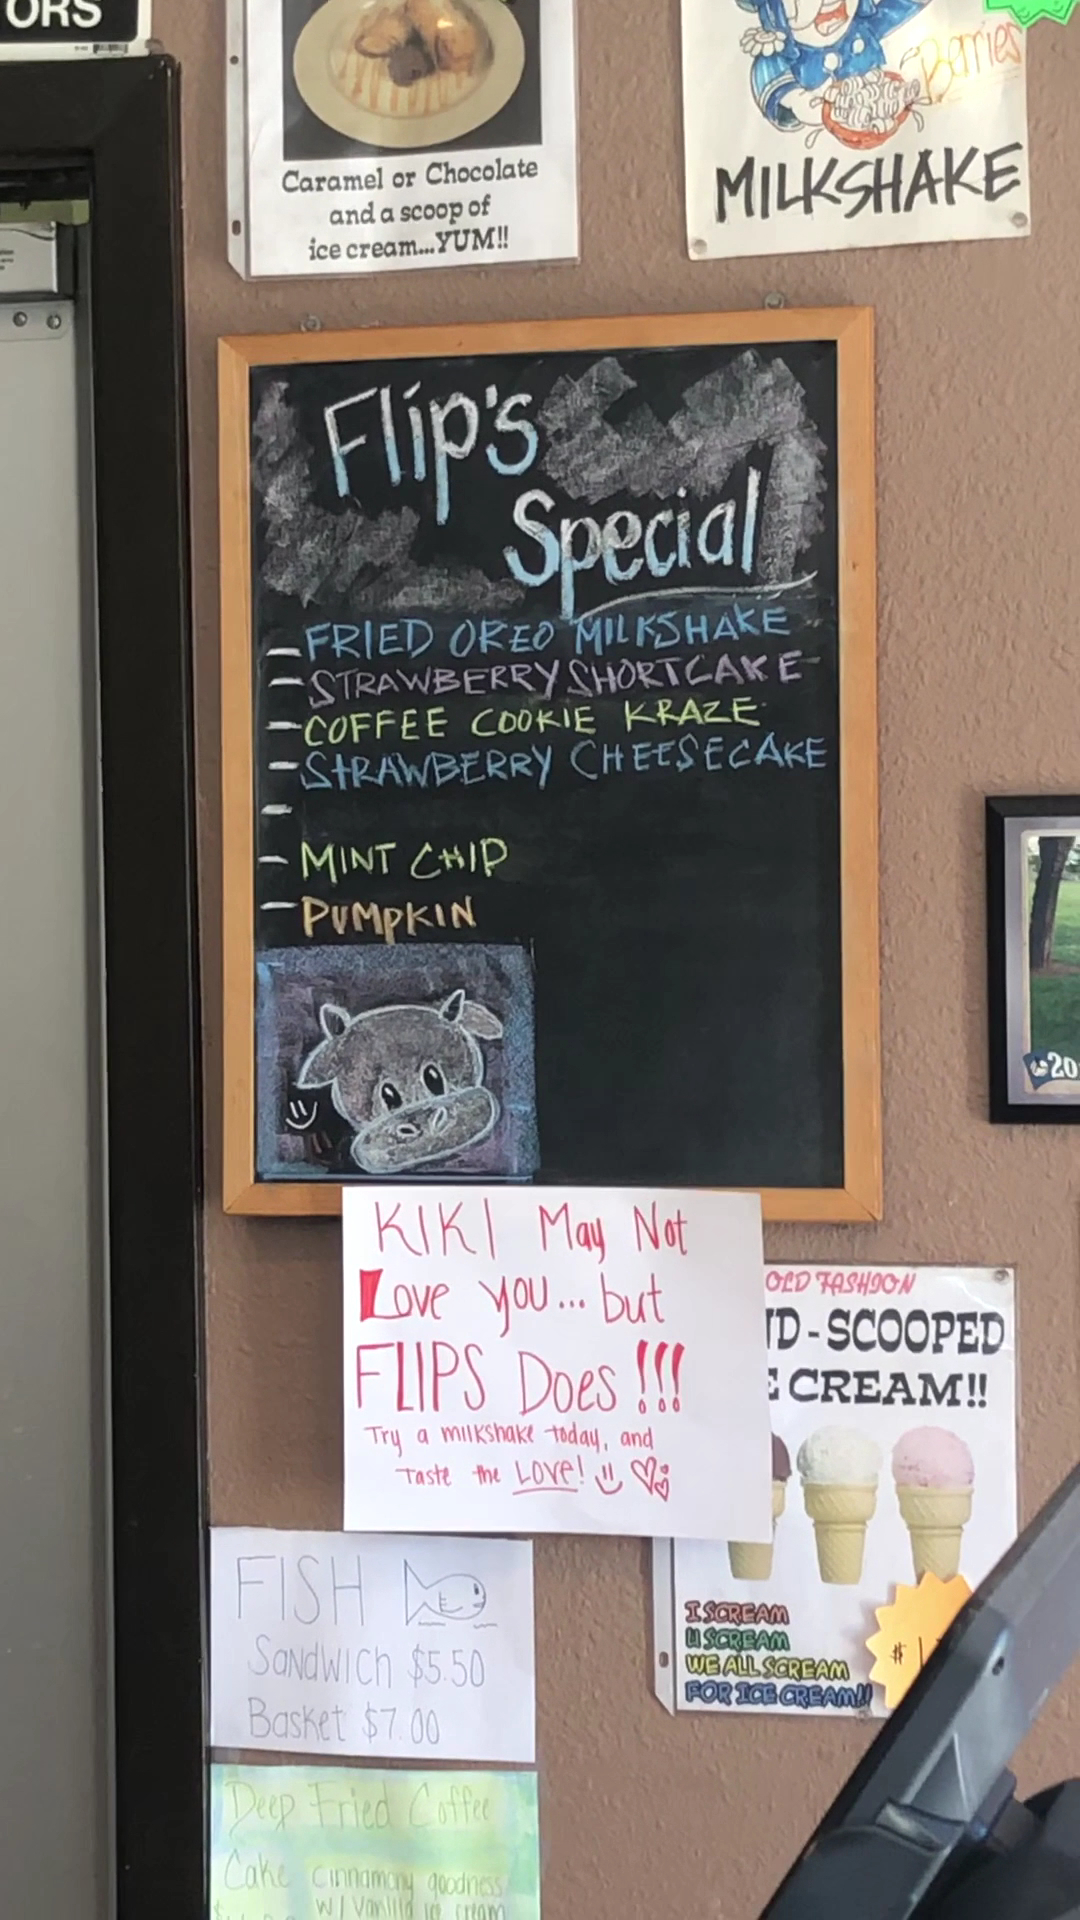 ORS
Caramel or Chocolate
and a scoop of
ice cream...YUM!!
Berries
MILKSHAKE
Flip's
Special
– FRIED OREO MILKSHAKE
– STRAWBERRY SHORTCAKE
– COFFEE COOKIE KRAZE
– STRAWBERRY CHEESECAKE
–
– MINT CHIP
– PUMPKIN
KIKI May Not
Love you... but
FLIPS Does!!!
Try a milkshake today, and
Taste the LOVE!
OLD FASHION
D-SCOOPED
CREAM!!
I SCREAM
U SCREAM
WE ALL SCREAM
FOR ICE CREAM!!
$1
FISH
Sandwich $5.50
Basket $7.00
Deep Fried Coffee
Cake cinnamony goodness
w/ Vanilla ice cream
20